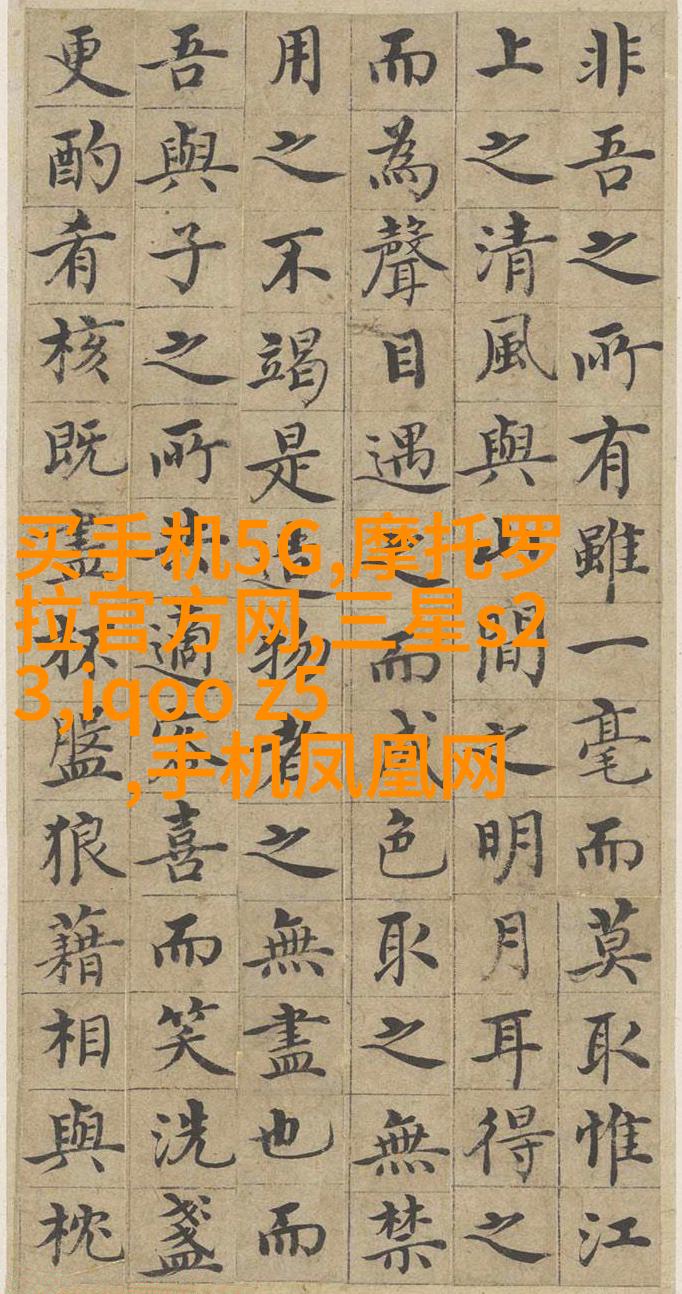 非吾之所有雖一毫而莫取惟江
上之清風與山間之明月耳得之
而為聲目遇之而成色取之無禁
用之不竭是造物者之無盡也而
吾與子之所共適客喜而笑洗盞
更酌肴核既盡杯盤狼藉相與枕
买手机5G,摩托罗
拉官方网,三星s2
3,iqoo z5
,手机凤凰网